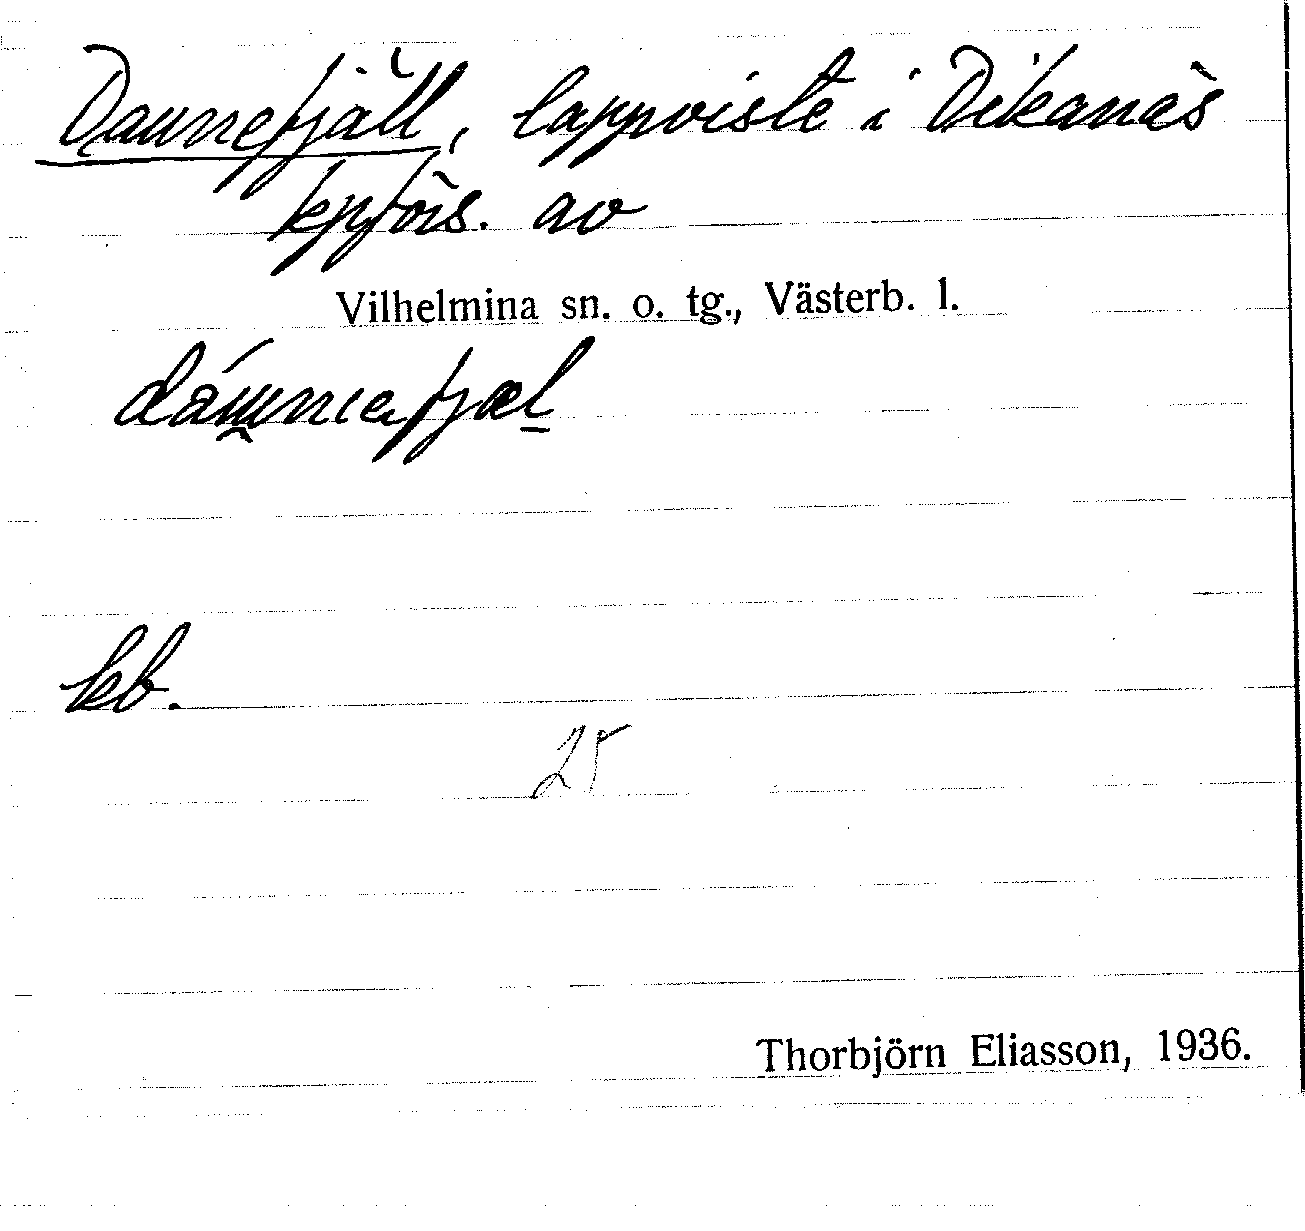 Daunefjäll, lappviste i Dikanäs
kpförs. av
Vilhelmina sn. o. tg., Västerb. l.
kb.
25
Thorbjörn Eliasson, 1936.